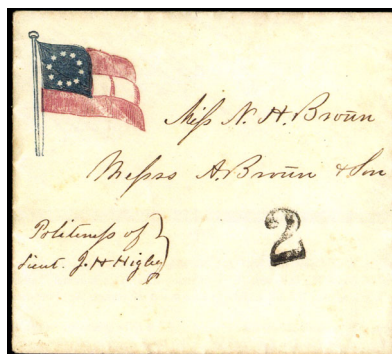 Miss N. H. Brown
Messrs A. Brown & Son
Politeness of
Lieut. J. H. Higley
2